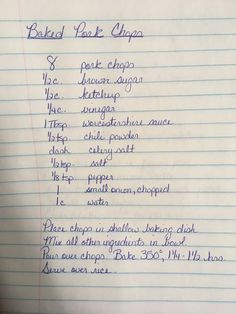 Baked Pork Chops
8 pork chops
1/2 c. brown sugar
1/2 c. ketchup
1/4 c. vinegar
1 Tbsp. worcestershire sauce
1/2 tsp. chili powder
dash celery salt
1/2 tsp. salt
1/8 tsp. pepper
1 small onion, chopped
1 c water
Place chops in shallow baking dish.
Mix all other ingredients in bowl.
Pour over chops. Bake 350°, 1 1/4 - 1 1/2 hrs.
Serve over rice.